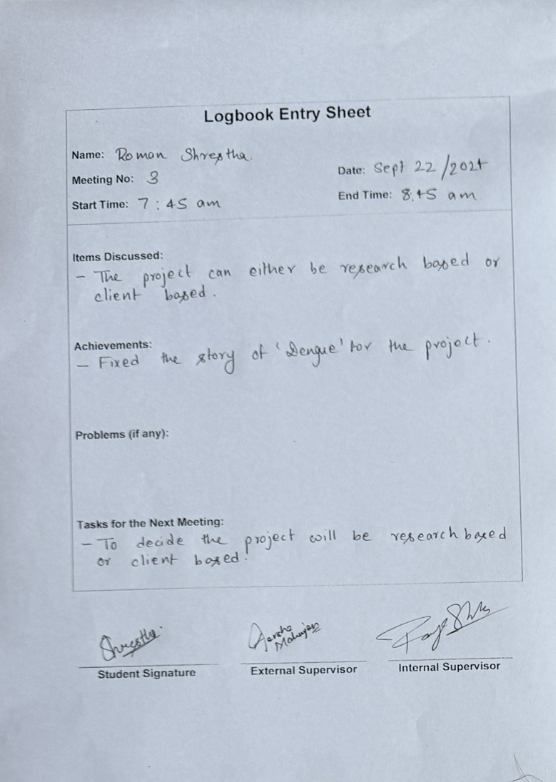 Logbook Entry Sheet
Name: Roman Shrestha.
Date: Sept 22/2024
Meeting No: 3
End Time: 8:45 am
Start Time: 7:45 am
Items Discussed:
- The project can either be research based or
client based.
Achievements:
- Fixed the story of 'Dengue' for the project.
Problems (if any):
Tasks for the Next Meeting:
- To decide the project will be research based
or client based.
Shrestha.
Student Signature
External Supervisor
Internal Supervisor